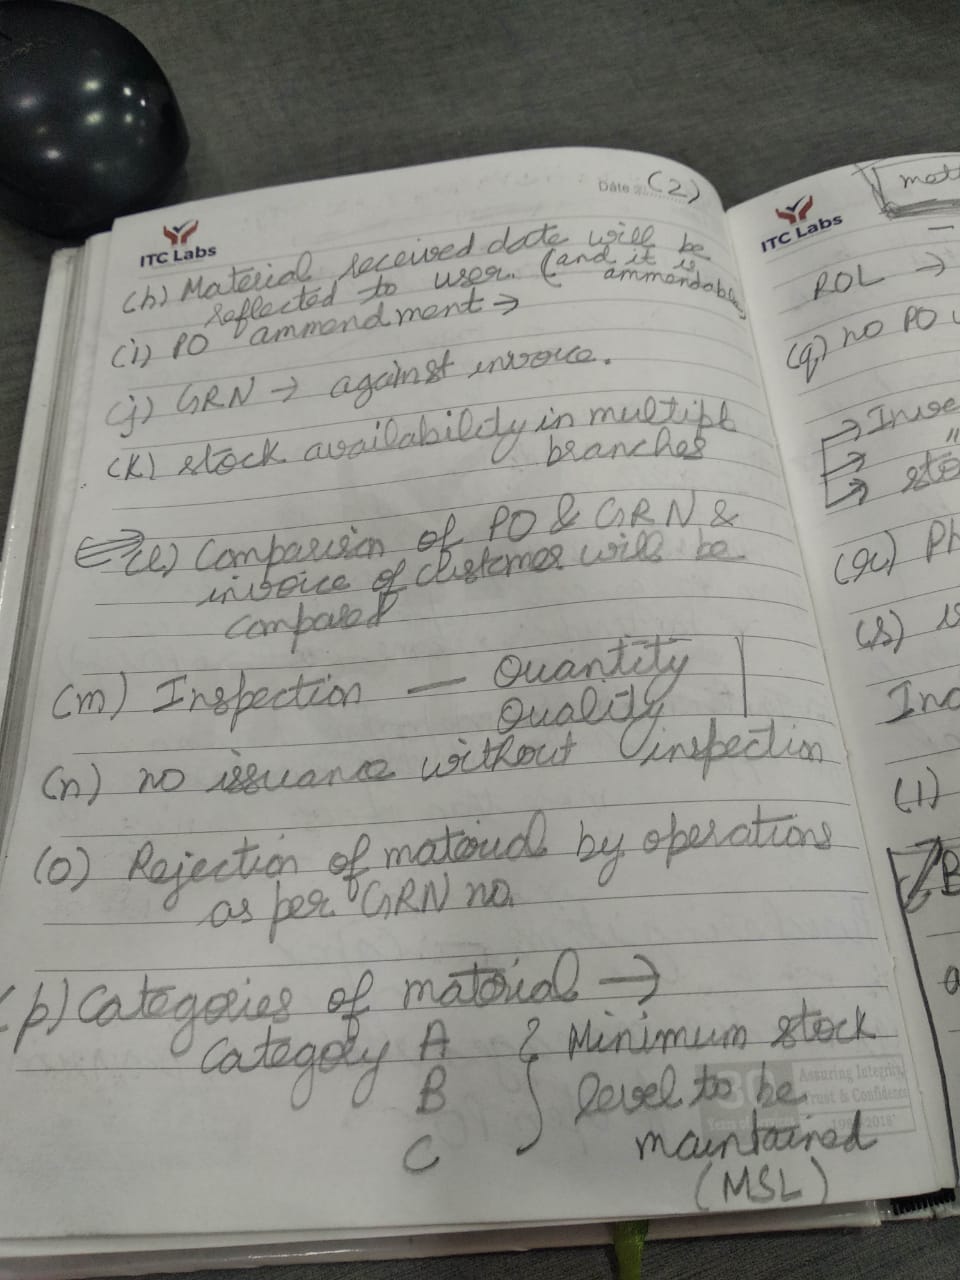 Date (2)
ITC Labs
(h) Material received date will be
reflected to user. (and it is
ammendable)
(i) PO ammendment →
(j) GRN → against invoice.
(k) stock availability in multipl
branches
(l) Comparision of PO & GRN &
invoice of customer will be
compared
(m) Inspection — Quantity
Quality
(n) no issuance without inspection
(o) Rejection of material by operations
as per GRN no.
(p) Categories of material →
Category A } Minimum stock
B level to be
C maintained
(MSL)
30 Assuring Integrity,
Trust & Confidence
ITC Labs
ROL →
(q) no PO
(r) Ph
(s)
(1)
B